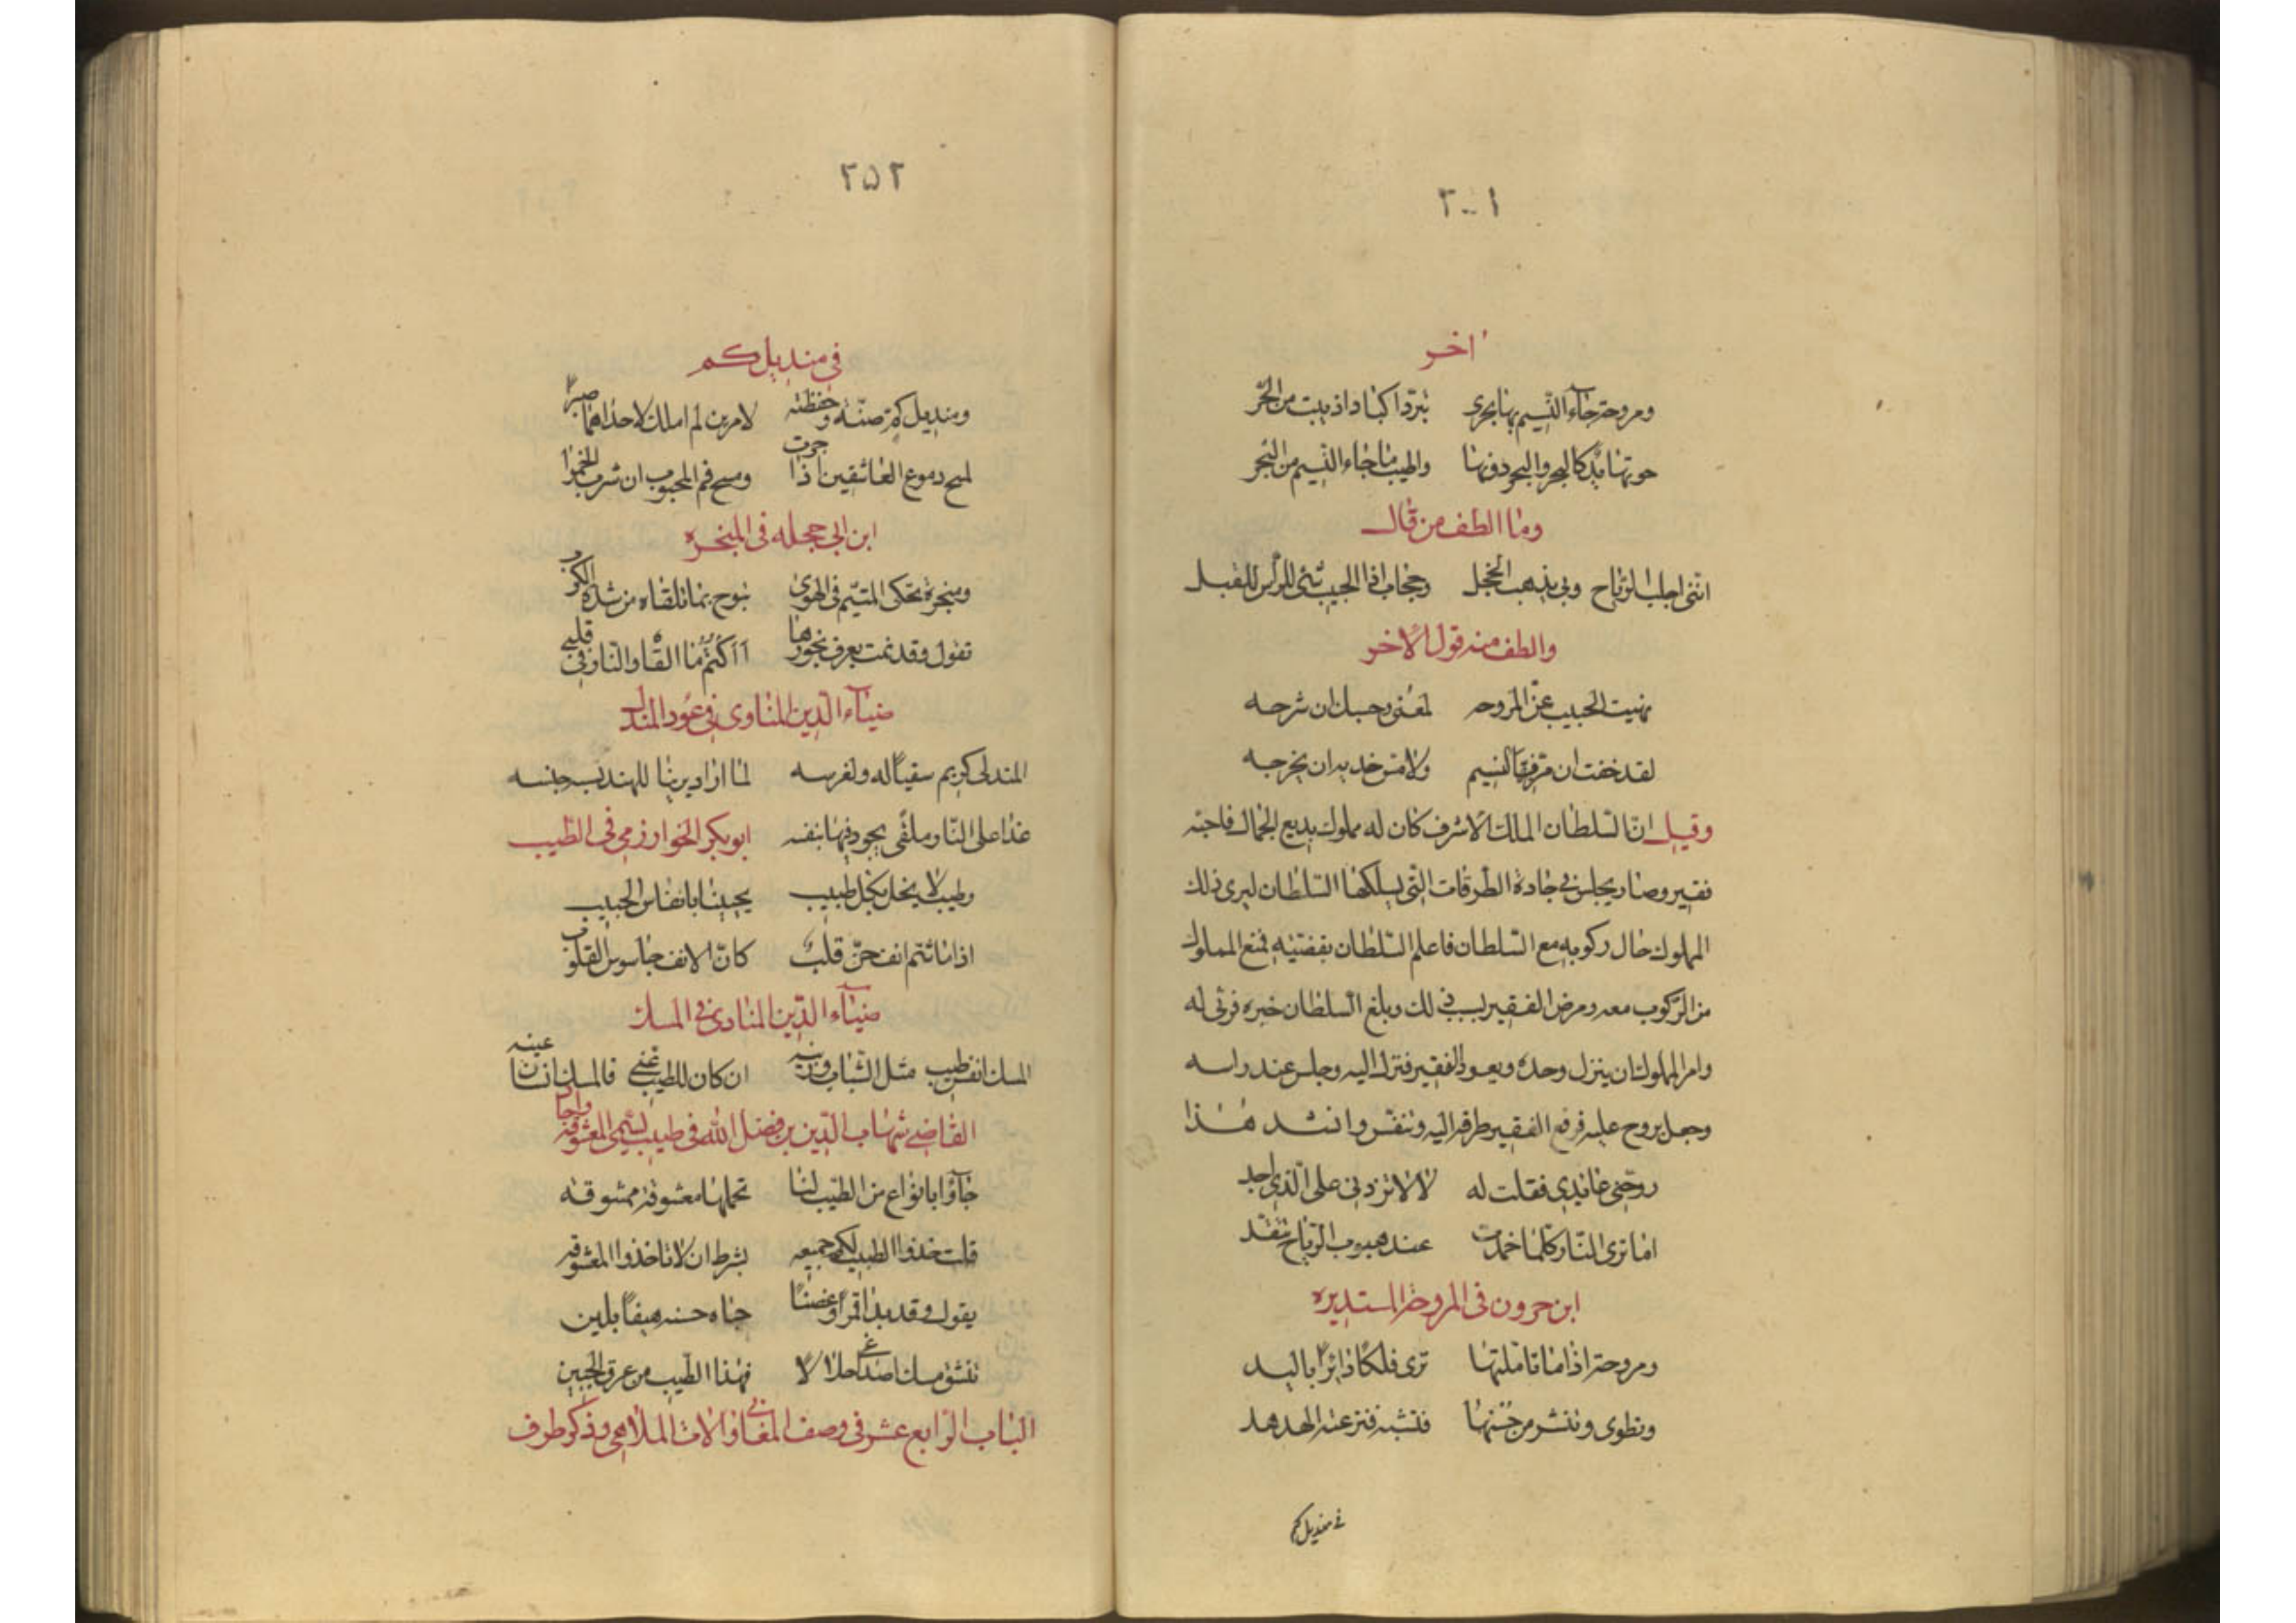 ٢-١
اخر
ومروحة جآء النسيم بها يجرى تبرد اكبادا اذيبت من الحر
حوتها يد كالبحر والبحر دونها واطيب ما جاء النسيم من البحر
وما الطف من قال
اننى اجلب الرياح وبى يذهب الخجل وحجاب اذا الحبيب ثنى الراس للقبل
والطف منه قول الاخر
نهيت الحبيب عن المروحه لمعنى وحسبك ان شرحه
لقد خفت ان مر فيها النسيم ولامس خديه ان يجرحه
وقيل ان السلطان الملك الاشرف كان له مملوك بديع الجمال فاحبه
فقير وصار يجلس فى جادة الطرقات التى يسلكها السلطان ليرى ذلك
المملوك حال ركوبه مع السلطان فاعلم السلطان بقضيته فمنع المملوك
من الركوب معه ومرض الفقير بسبب ذلك وبلغ السلطان خبره فرثى له
وامر المملوك ان ينزل وحده ويعود الفقير فنزل اليه وجلس عند راسه
وجعل يروح عليه فرفع الفقير طرفه اليه وتنفس وانشد هذا
روحنى عائدى فقلت له لا لا تزدنى على الذى اجد
اما ترى النار كلما خمدت عند هبوب الرياح تتقد
ابن حرون فى المروحة المستديره
ومروحة اذا ما تاملتها ترى فلكا دائرا باليد
وتطوى وتنشر من حسنها فتشبه قنزعة الهدهد
فى منديل كم
٢٥٢
فى منديل كم
ومنديل كم صنته وحفظته لامرين لم املك لاحداهما صبرا
لمسح دموع العاشقين اذا جرت ومسح فم المحبوب ان شرب الخمرا
ابن ابى حجله فى المبخره
ومبخرة تحكى المتيم فى الهوى تبوح بما تلقاه من شدة الكرب
تقول وقد نمت بعرف بخورها أأكتم ما القاه والنار فى قلبى
ضيآء الدين المناوى فى عود المندل
المندلى كريم سقيا له ولغرسه لما اراد يرينا للهند بحسن جنسه
غدا على النار ملقى يجود فيها بنفسه ابو بكر الخوارزمى فى الطيب
وطيب لا يخل بكل طيب يحيينا بانفاس الحبيب
اذا ما شم انف حن قلب كان الانف جاسوس القلوب
ضيآء الدين المناوى فى المسك
المسك انفس طيب مثل الشباب وزينه ان كان للطيب غنى فالمسك انسان عينه
القاضى شهاب الدين بن فضل الله فى طيب يسمى المعشوقه واجاد
جآؤا بانواع من الطيب لنا تحملها معشوقة ممشوقه
قلت خذوا الطيب لكم جميعه بشرط ان لا تاخذوا المعشوقه
يقول وقد بدا قمرا وغصنا حباه حسنه هيفا بلين
تنشق مسك اصداغى حلالا فهذا الطيب من عرق الجبين
الباب الرابع عشر فى وصف المغانى والات الملاهى وذكر طرف